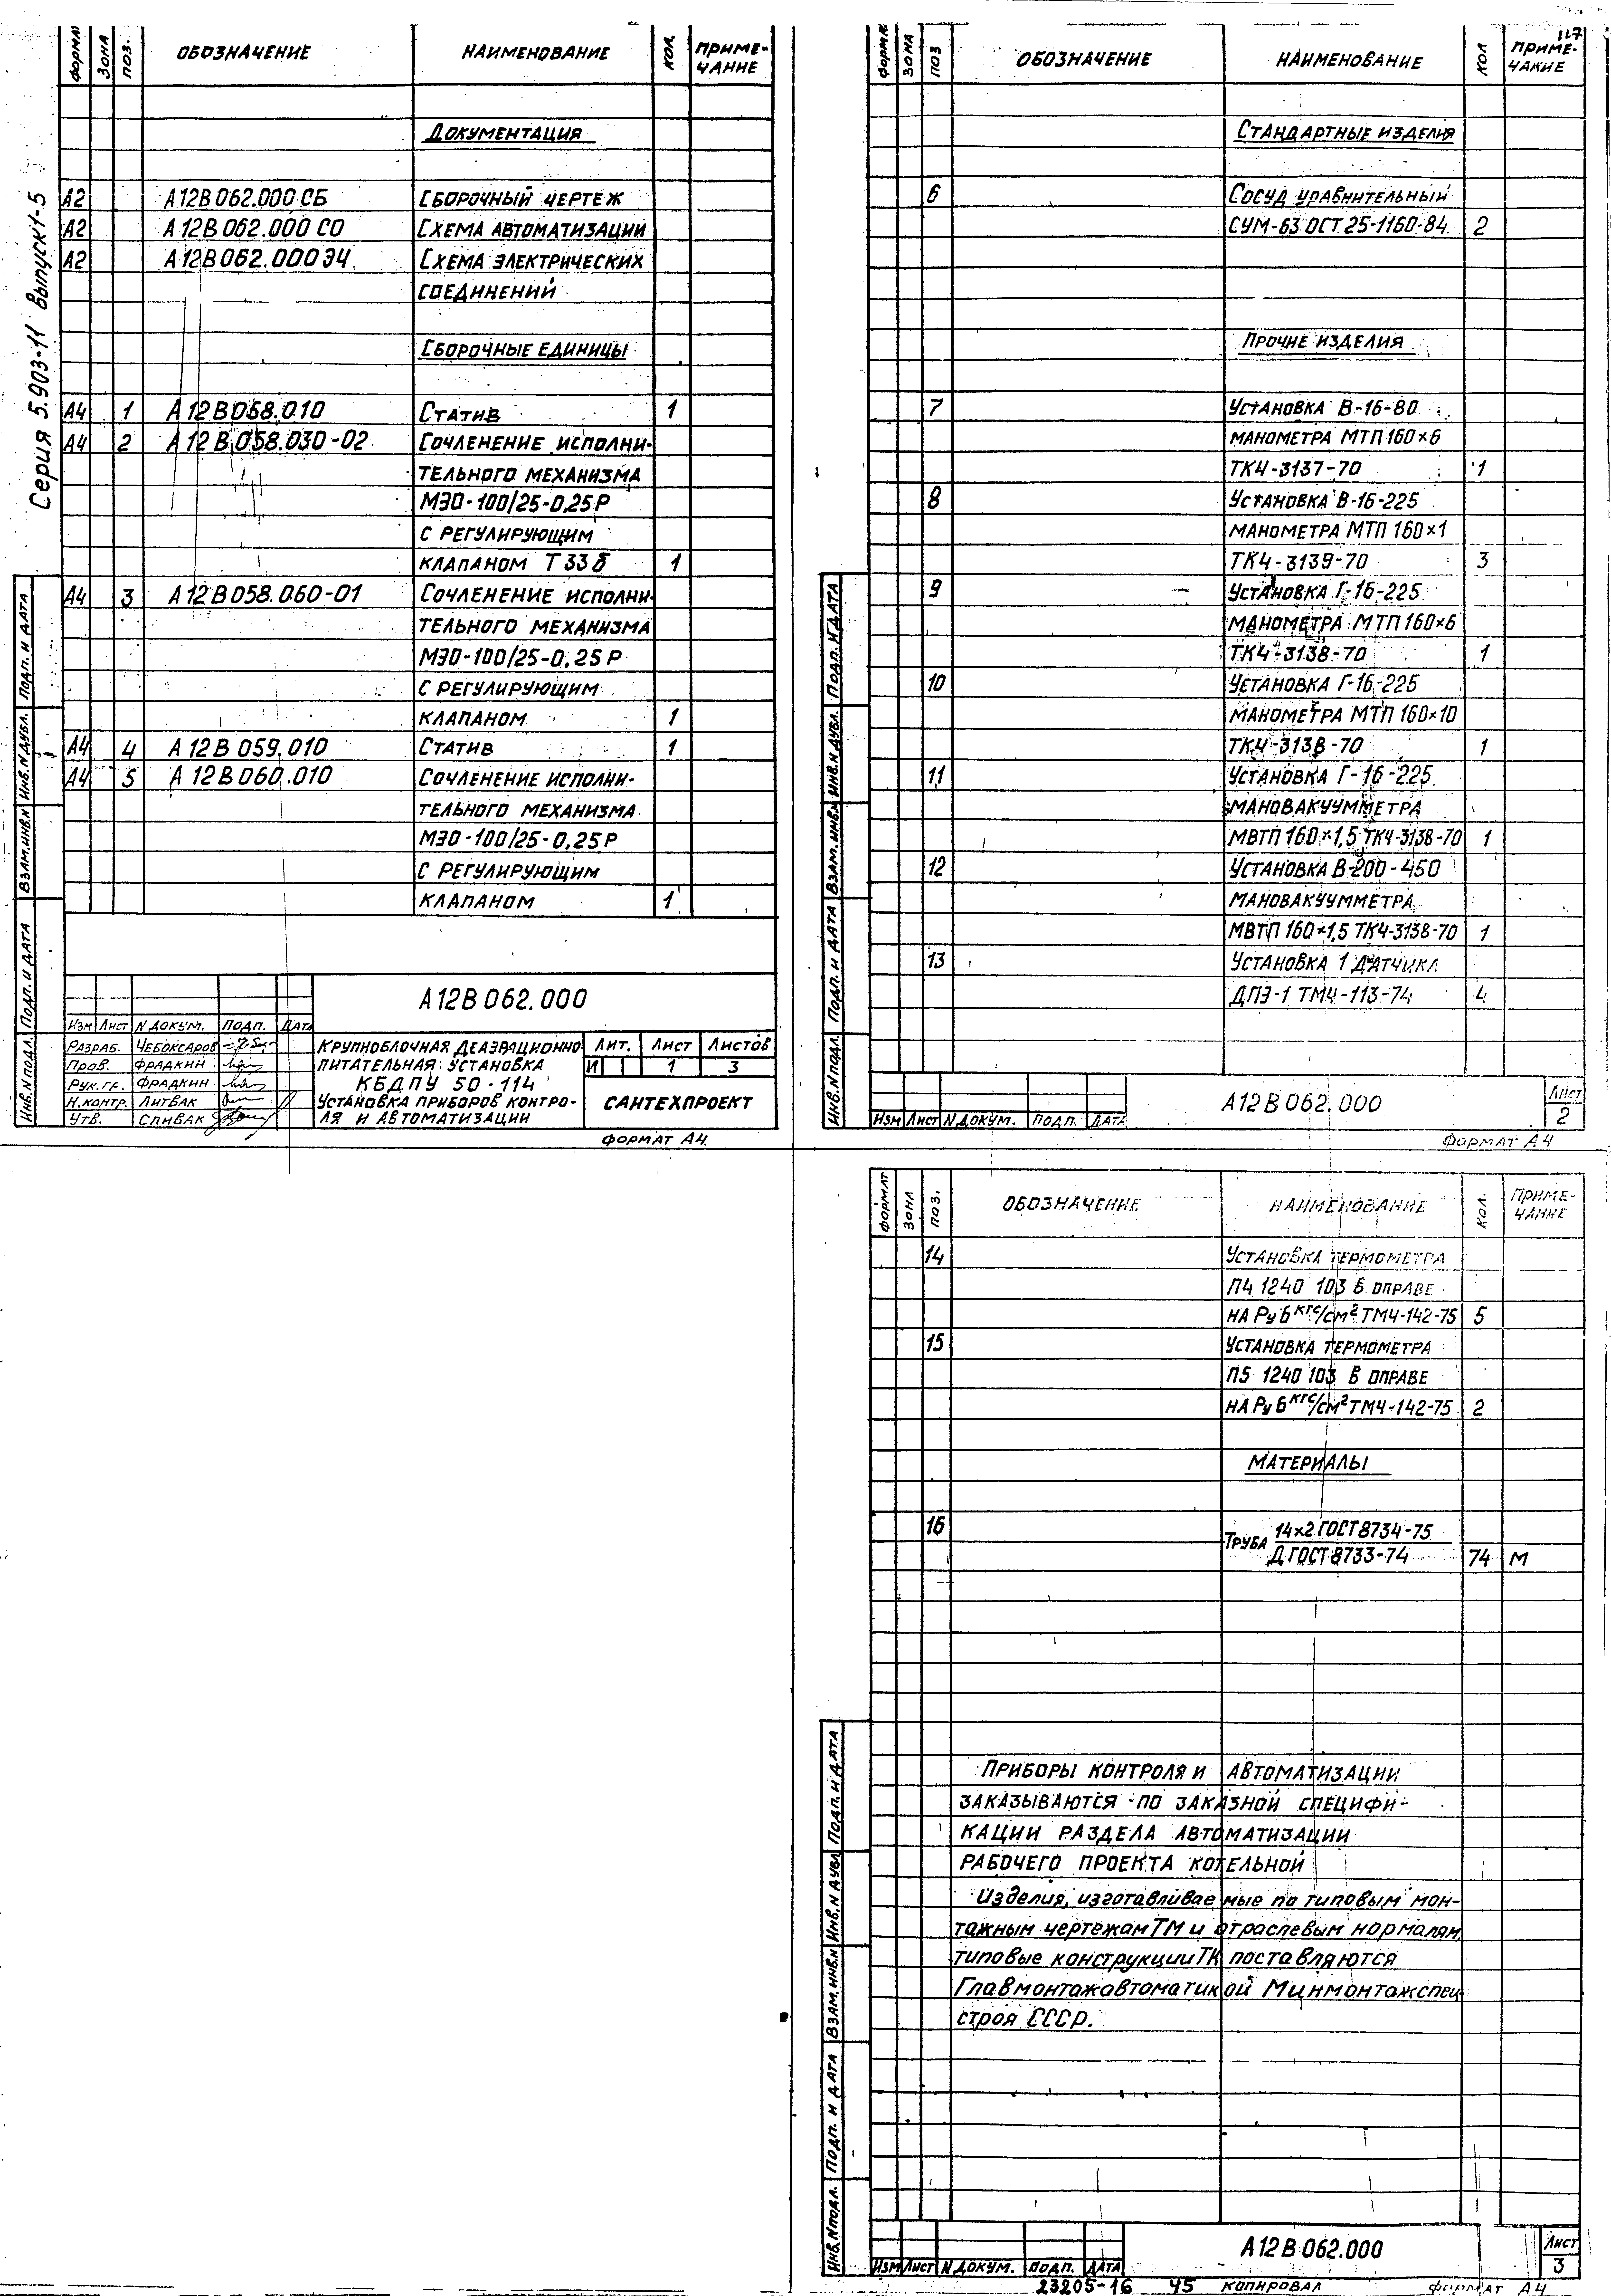 Серия 5.903-11 Выпуск 1-5
ФОРМАТ ЗОНА ПОЗ. ОБОЗНАЧЕНИЕ НАИМЕНОВАНИЕ КОЛ. ПРИМЕ-
ЧАНИЕ
ДОКУМЕНТАЦИЯ
А2 А12В062.000 СБ СБОРОЧНЫЙ ЧЕРТЕЖ
А2 А12В062.000 СО СХЕМА АВТОМАТИЗАЦИИ
А2 А12В062.000 Э4 СХЕМА ЭЛЕКТРИЧЕСКИХ
СОЕДИНЕНИЙ
СБОРОЧНЫЕ ЕДИНИЦЫ
А4 1 А12В058.010 СТАТИВ 1
А4 2 А12В058.030-02 СОЧЛЕНЕНИЕ ИСПОЛНИ-
ТЕЛЬНОГО МЕХАНИЗМА
МЭО-100/25-0,25Р
С РЕГУЛИРУЮЩИМ
КЛАПАНОМ Т 33 б 1
А4 3 А12В058.060-01 СОЧЛЕНЕНИЕ ИСПОЛНИ-
ТЕЛЬНОГО МЕХАНИЗМА
МЭО-100/25-0,25Р
С РЕГУЛИРУЮЩИМ
КЛАПАНОМ 1
А4 4 А12В059.010 СТАТИВ 1
А4 5 А12В060.010 СОЧЛЕНЕНИЕ ИСПОЛНИ-
ТЕЛЬНОГО МЕХАНИЗМА
МЭО-100/25-0,25Р
С РЕГУЛИРУЮЩИМ
КЛАПАНОМ 1
ИНВ.N ПОДЛ. ПОДП. И ДАТА ВЗАМ.ИНВ.N ИНВ.N ДУБЛ. ПОДП. И ДАТА
А12В062.000
ИЗМ ЛИСТ N ДОКУМ. ПОДП. ДАТА
РАЗРАБ. ЧЕБОКСАРОВ
ПРОВ. ФРАДКИН
РУК.ГР. ФРАДКИН
Н.КОНТР. ЛИТВАК
УТВ. СПИВАК
КРУПНОБЛОЧНАЯ ДЕАЭРАЦИОННО
ПИТАТЕЛЬНАЯ УСТАНОВКА
КБДПУ 50-114
УСТАНОВКА ПРИБОРОВ КОНТРО-
ЛЯ И АВТОМАТИЗАЦИИ
ЛИТ. ЛИСТ ЛИСТОВ
И 1 3
САНТЕХПРОЕКТ
ФОРМАТ А4
117
ФОРМАТ ЗОНА ПОЗ ОБОЗНАЧЕНИЕ НАИМЕНОВАНИЕ КОЛ ПРИМЕ-
ЧАНИЕ
СТАНДАРТНЫЕ ИЗДЕЛИЯ
6 СОСУД УРАВНИТЕЛЬНЫЙ
СУМ-63 ОСТ 25-1160-84 2
ПРОЧИЕ ИЗДЕЛИЯ
7 УСТАНОВКА В-16-80
МАНОМЕТРА МТП 160×6
ТК4-3137-70 1
8 УСТАНОВКА В-16-225
МАНОМЕТРА МТП 160×1
ТК4-3139-70 3
9 УСТАНОВКА Г-16-225
МАНОМЕТРА МТП 160×6
ТК4-3138-70 1
10 УСТАНОВКА Г-16-225
МАНОМЕТРА МТП 160×10
ТК4-3138-70 1
11 УСТАНОВКА Г-16-225
МАНОВАКУУММЕТРА
МВТП 160×1,5 ТК4-3138-70 1
12 УСТАНОВКА В-200-450
МАНОВАКУУММЕТРА
МВТП 160×1,5 ТК4-3138-70 1
13 УСТАНОВКА 1 ДАТЧИКА
ДПЭ-1 ТМ4-113-74 4
ИНВ.N ПОДЛ. ПОДП. И ДАТА ВЗАМ.ИНВ.N ИНВ.N ДУБЛ. ПОДП. И ДАТА
ИЗМ ЛИСТ N ДОКУМ. ПОДП. ДАТА
А12В062.000
ЛИСТ
2
ФОРМАТ А4
ФОРМАТ ЗОНА ПОЗ. ОБОЗНАЧЕНИЕ НАИМЕНОВАНИЕ КОЛ. ПРИМЕ-
ЧАНИЕ
14 УСТАНОВКА ТЕРМОМЕТРА
П4 1240 103 В ОПРАВЕ
НА Ру 6 кгс/см² ТМ4-142-75 5
15 УСТАНОВКА ТЕРМОМЕТРА
П5 1240 103 В ОПРАВЕ
НА Ру 6 кгс/см² ТМ4-142-75 2
МАТЕРИАЛЫ
16 ТРУБА 14×2 ГОСТ 8734-75
Д ГОСТ 8733-74 74 М
ПРИБОРЫ КОНТРОЛЯ И АВТОМАТИЗАЦИИ
ЗАКАЗЫВАЮТСЯ ПО ЗАКАЗНОЙ СПЕЦИФИ-
КАЦИИ РАЗДЕЛА АВТОМАТИЗАЦИИ
РАБОЧЕГО ПРОЕКТА КОТЕЛЬНОЙ
Изделия, изготавливаемые по типовым мон-
тажным чертежам ТМ и отраслевым нормалям,
типовые конструкции ТК поставляются
Главмонтажавтоматикой Минмонтажспец
строя СССР.
ИНВ.N ПОДЛ. ПОДП. И ДАТА ВЗАМ.ИНВ.N ИНВ.N ДУБЛ ПОДП. И ДАТА
ИЗМ ЛИСТ N ДОКУМ. ПОДП. ДАТА
А12В062.000
ЛИСТ
3
23205-16 45 КОПИРОВАЛ ФОРМАТ А4